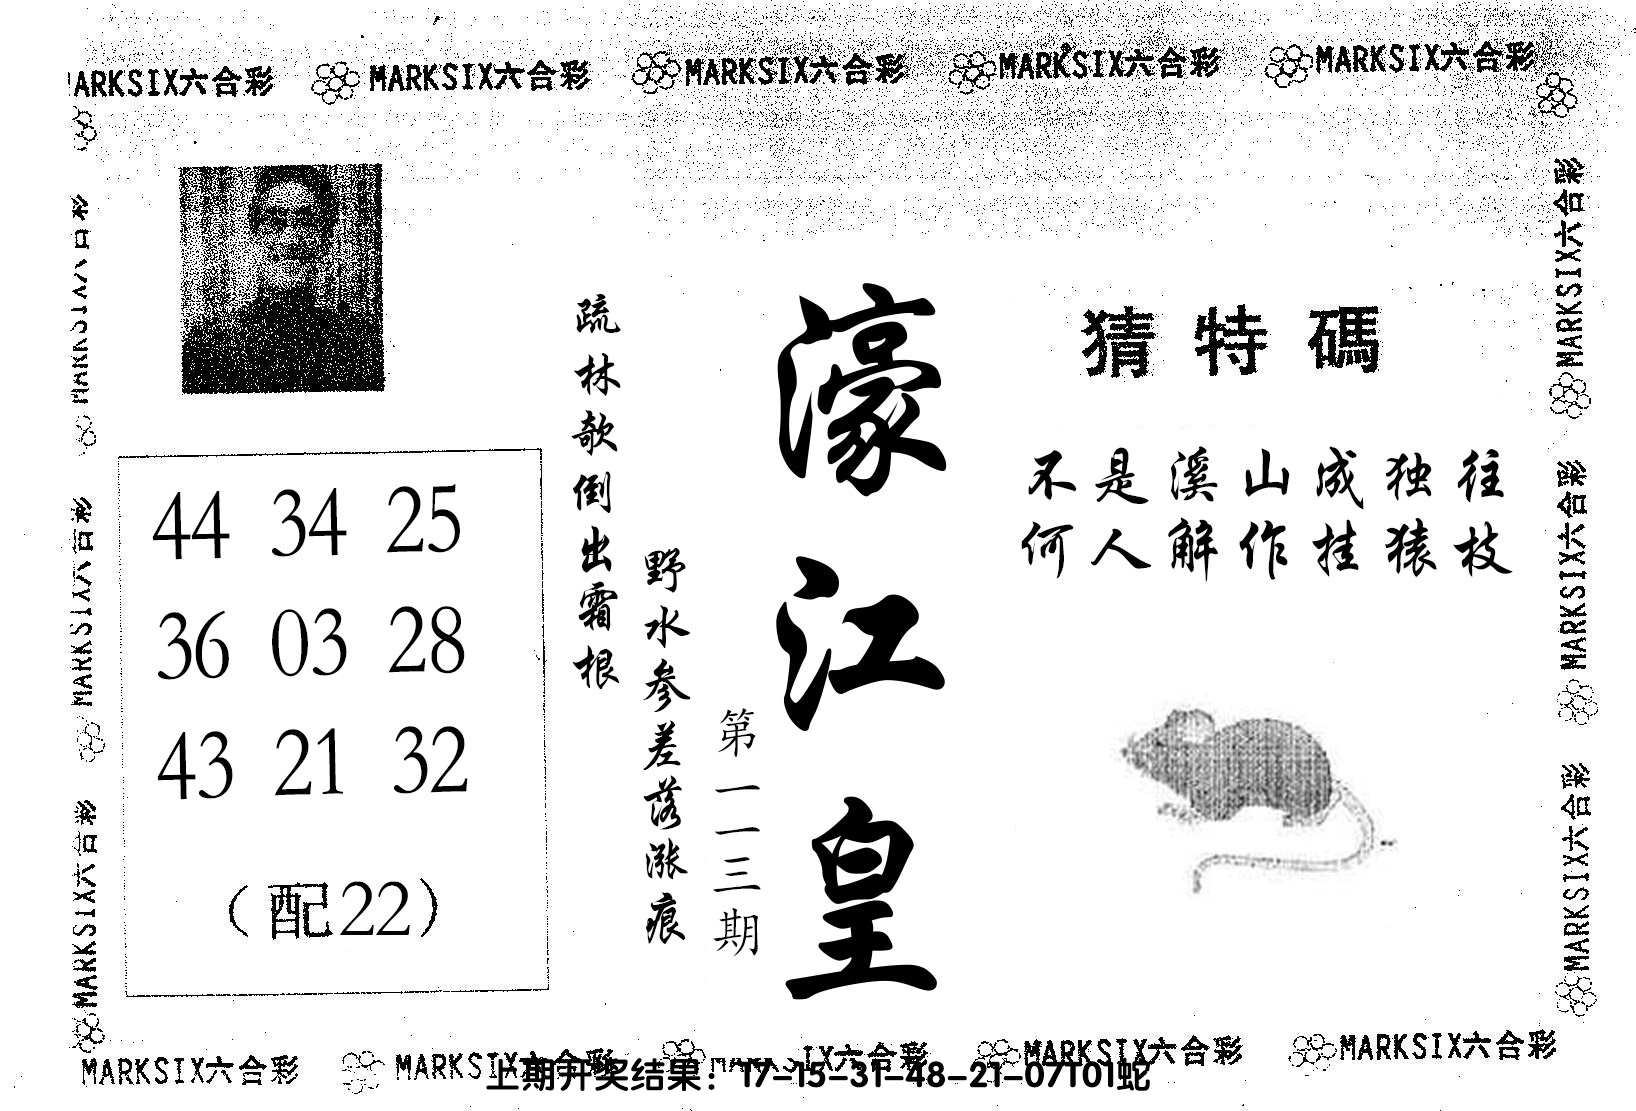 MARKSIX六合彩 MARKSIX六合彩 MARKSIX六合彩 MARKSIX六合彩 MARKSIX六合彩
猜特碼
不是溪山成独往
何人解作挂猿枝
濠江皇
第一一三期
野水参差落涨痕
疏林欹倒出霜根
44 34 25
36 03 28
43 21 32
（配22）
MARKSIX六合彩
MARKSIX六合彩
MARKSIX六合彩
MARKSIX六合彩
MARKSIX六合彩
MARKSIX六合彩
MARKSIX六合彩 MARKSIX六合彩 MARKSIX六合彩 MARKSIX六合彩 MARKSIX六合彩
上期开奖结果：17-15-31-48-21-07T01蛇